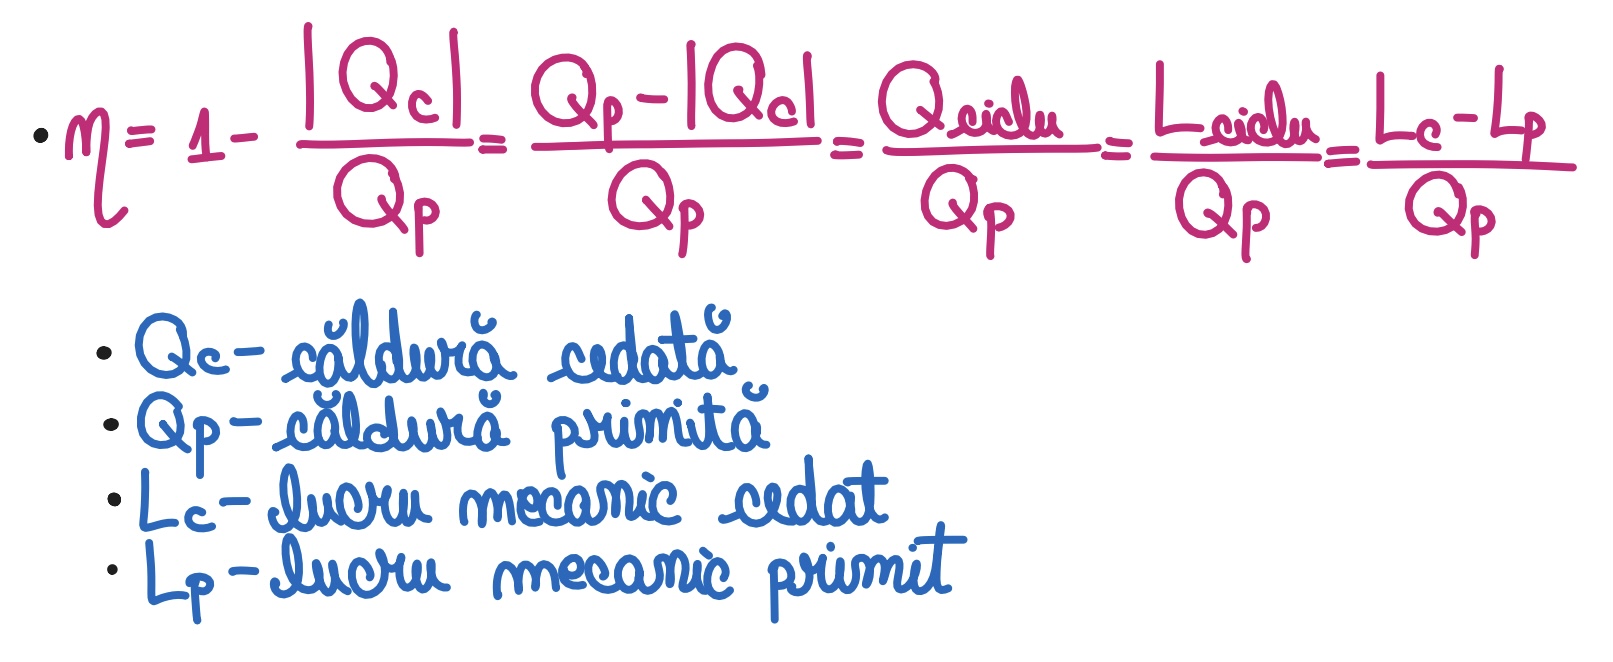 • η = 1 - |Qc| / Qp = Qp - |Qc| / Qp = Qciclu / Qp = Lciclu / Qp = Lc - Lp / Qp
• Qc - căldură cedată
• Qp - căldură primită
• Lc - lucru mecanic cedat
• Lp - lucru mecanic primit